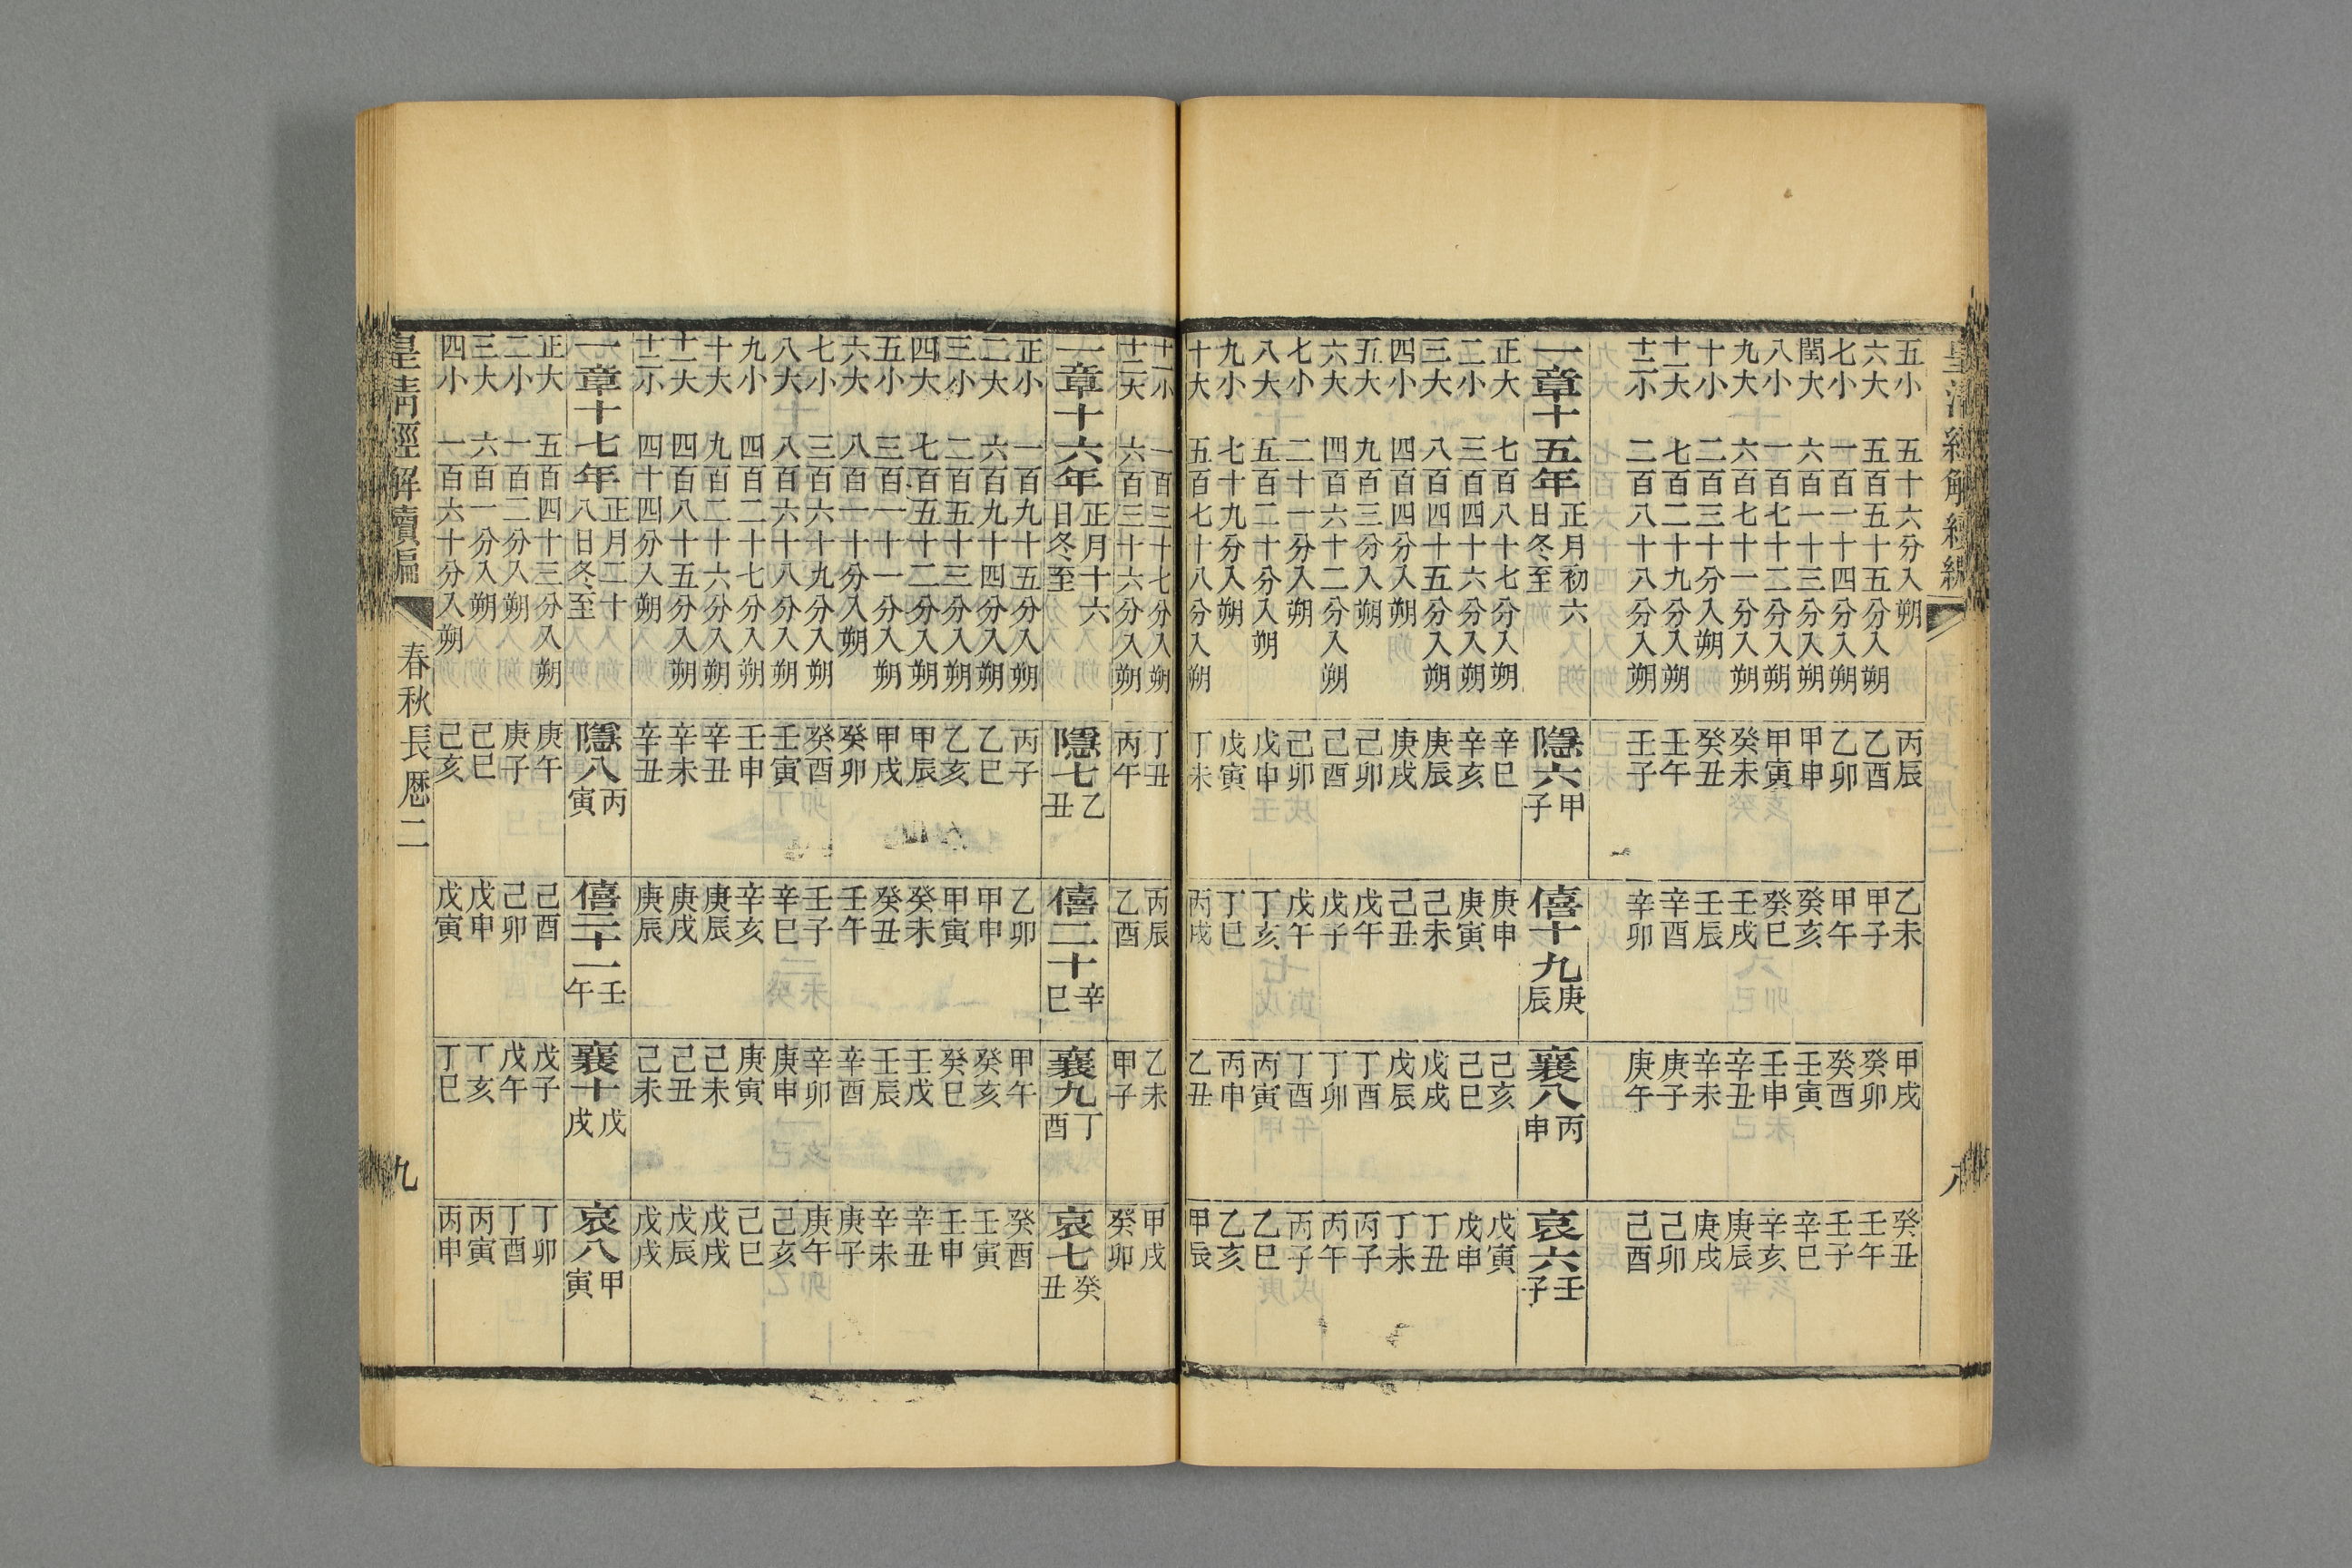 五小 五十六分入朔 丙辰 乙未 甲戌 癸丑
六大 五百五十五分入朔 乙酉 甲子 癸卯 壬午
七小 一百一十四分入朔 乙卯 甲午 癸酉 壬子
閏大 六百一十三分入朔 甲申 癸亥 壬寅 辛巳
八小 一百七十二分入朔 甲寅 癸巳 壬申 辛亥
九大 六百七十一分入朔 癸未 壬戌 辛丑 庚辰
十小 二百三十分入朔 癸丑 壬辰 辛未 庚戌
十一大 七百二十九分入朔 壬午 辛酉 庚子 己卯
十二小 二百八十八分入朔 壬子 辛卯 庚午 己酉
一章十五年 正月初六日冬至 隱六甲子 僖十九庚辰 襄八丙申 哀六壬子
正大 七百八十七分入朔 辛巳 庚申 己亥 戊寅
二小 三百四十六分入朔 辛亥 庚寅 己巳 戊申
三大 八百四十五分入朔 庚辰 己未 戊戌 丁丑
四小 四百四分入朔 庚戌 己丑 戊辰 丁未
五大 九百三分入朔 己卯 戊午 丁酉 丙子
六大 四百六十二分入朔 己酉 戊子 丁卯 丙午
七小 二十一分入朔 己卯 戊午 丁酉 丙子
八大 五百二十分入朔 戊申 丁亥 丙寅 乙巳
九小 七十九分入朔 戊寅 丁巳 丙申 乙亥
十大 五百七十八分入朔 丁未 丙戌 乙丑 甲辰
十一小 一百三十七分入朔 丁丑 丙辰 乙未 甲戌
十二大 六百三十六分入朔 丙午 乙酉 甲子 癸卯
一章十六年 正月十六日冬至 隱七乙丑 僖二十辛巳 襄九丁酉 哀七癸丑
正小 一百九十五分入朔 丙子 乙卯 甲午 癸酉
二大 六百九十四分入朔 乙巳 甲申 癸亥 壬寅
三小 二百五十三分入朔 乙亥 甲寅 癸巳 壬申
四大 七百五十二分入朔 甲辰 癸未 壬戌 辛丑
五小 三百一十一分入朔 甲戌 癸丑 壬辰 辛未
六大 八百一十分入朔 癸卯 壬午 辛酉 庚子
七小 三百六十九分入朔 癸酉 壬子 辛卯 庚午
八大 八百六十八分入朔 壬寅 辛巳 庚申 己亥
九小 四百二十七分入朔 壬申 辛亥 庚寅 己巳
十大 九百二十六分入朔 辛丑 庚辰 己未 戊戌
十一大 四百八十五分入朔 辛未 庚戌 己丑 戊辰
十二小 四十四分入朔 辛丑 庚辰 己未 戊戌
一章十七年 正月二十八日冬至 隱八丙寅 僖二十一壬午 襄十戊戌 哀八甲寅
正大 五百四十三分入朔 庚午 己酉 戊子 丁卯
二小 一百二分入朔 庚子 己卯 戊午 丁酉
三大 六百一分入朔 己巳 戊申 丁亥 丙寅
四小 一百六十分入朔 己亥 戊寅 丁巳 丙申
皇清經解續編 春秋長厯二 九